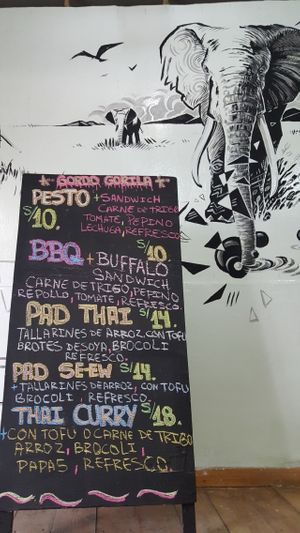 GORDO GORILA
PESTO + SANDWICH
S/10. CARNE DE TRIGO
TOMATE, PEPINO
LECHUGA, REFRESCO
BBQ S/10.
+ BUFFALO
SANDWICH
CARNE DE TRIGO, PEPINO
REPOLLO, TOMATE, REFRESCO.
PAD THAI S/14.
TALLARINES DE ARROZ CON TOFU
BROTES DE SOYA, BROCOLI
REFRESCO.
PAD SE-EW S/14.
+ TALLARINES DE ARROZ, CON TOFU
BROCOLI, REFRESCO.
THAI CURRY S/18.
+ CON TOFU O CARNE DE TRIGO
ARROZ, BROCOLI,
PAPAS, REFRESCO.